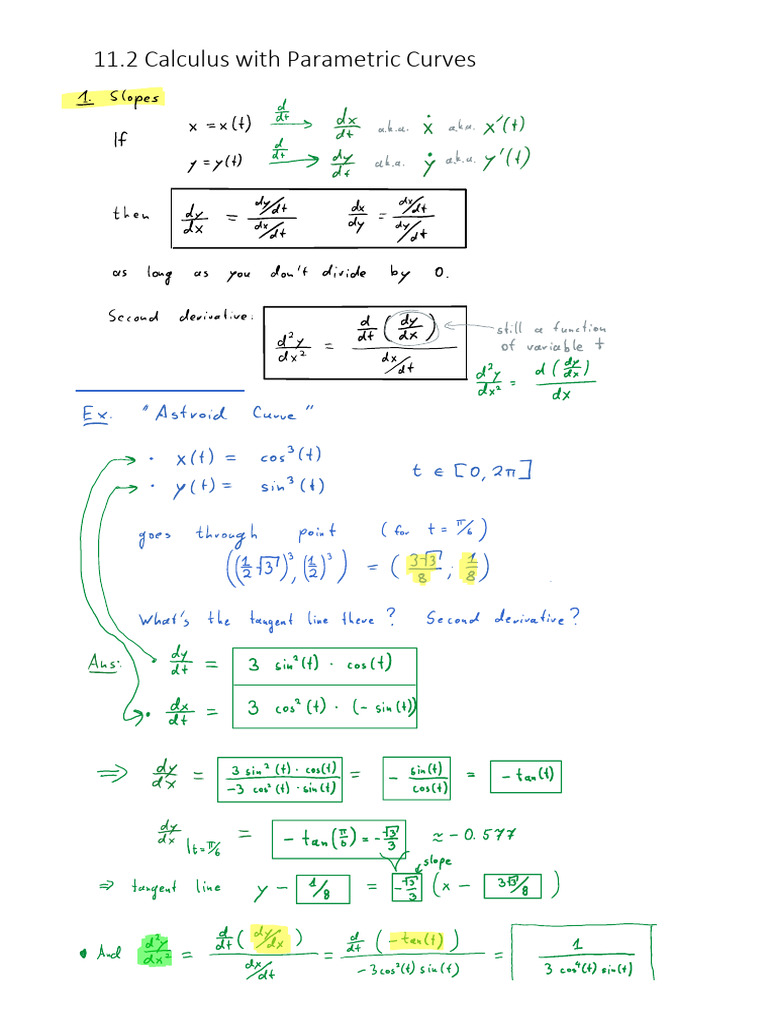 11.2 Calculus with Parametric Curves
1. Slopes
If x = x(t) d/dt → dx/dt a.k.a. ẋ a.k.a. x'(t)
y = y(t) d/dt → dy/dt a.k.a. ẏ a.k.a. y'(t)
then dy/dx = (dy/dt)/(dx/dt) dx/dy = (dx/dt)/(dy/dt)
as long as you don't divide by 0.
Second derivative: d²y/dx² = (d/dt (dy/dx))/(dx/dt) ← still a function of variable t
d²y/dx² = d(dy/dx)/dx
Ex. "Astroid Curve"
• x(t) = cos³(t)
• y(t) = sin³(t) t ∈ [0, 2π]
goes through point (for t = π/6)
((1/2 √3)³, (1/2)³) = (3√3/8 ; 1/8)
What's the tangent line there? Second derivative?
Ans: • dy/dt = 3 sin²(t) · cos(t)
• dx/dt = 3 cos²(t) · (- sin(t))
⇒ dy/dx = (3 sin²(t) · cos(t))/(-3 cos²(t) · sin(t)) = - sin(t)/cos(t) = - tan(t)
dy/dx |t=π/6 = - tan(π/6) = - √3/3 ≈ - 0.577
slope
⇒ tangent line y - 1/8 = -√3/3 (x - 3√3/8)
• And d²y/dx² = (d/dt (dy/dx))/(dx/dt) = (d/dt (-tan(t)))/(-3cos²(t) sin(t)) = 1/(3 cos⁴(t) sin(t))